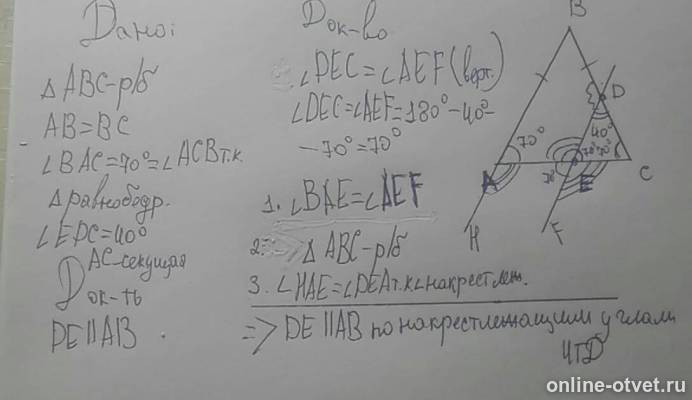 Дано:
△ ABC-р/б
AB=BC
∠BAC=70°=∠ACB т.к.
△ равнобедр.
∠EDC=40°
AC-секущая
Док-ть
DE||AB
Док-во
∠DEC=∠AEF(верт.)
∠DEC=∠AEF=180°-40°-
-70°=70°
1. ∠BAE=∠AEF
2. △ ABC-р/б
3. ∠HAE=∠DEA т.к ∠накрестлеж.
=> DE||AB по накрестлежащим углам
ЧТД
B
D
40°
70°
70° 70°
A
70°
E
C
H
F
online-otvet.ru